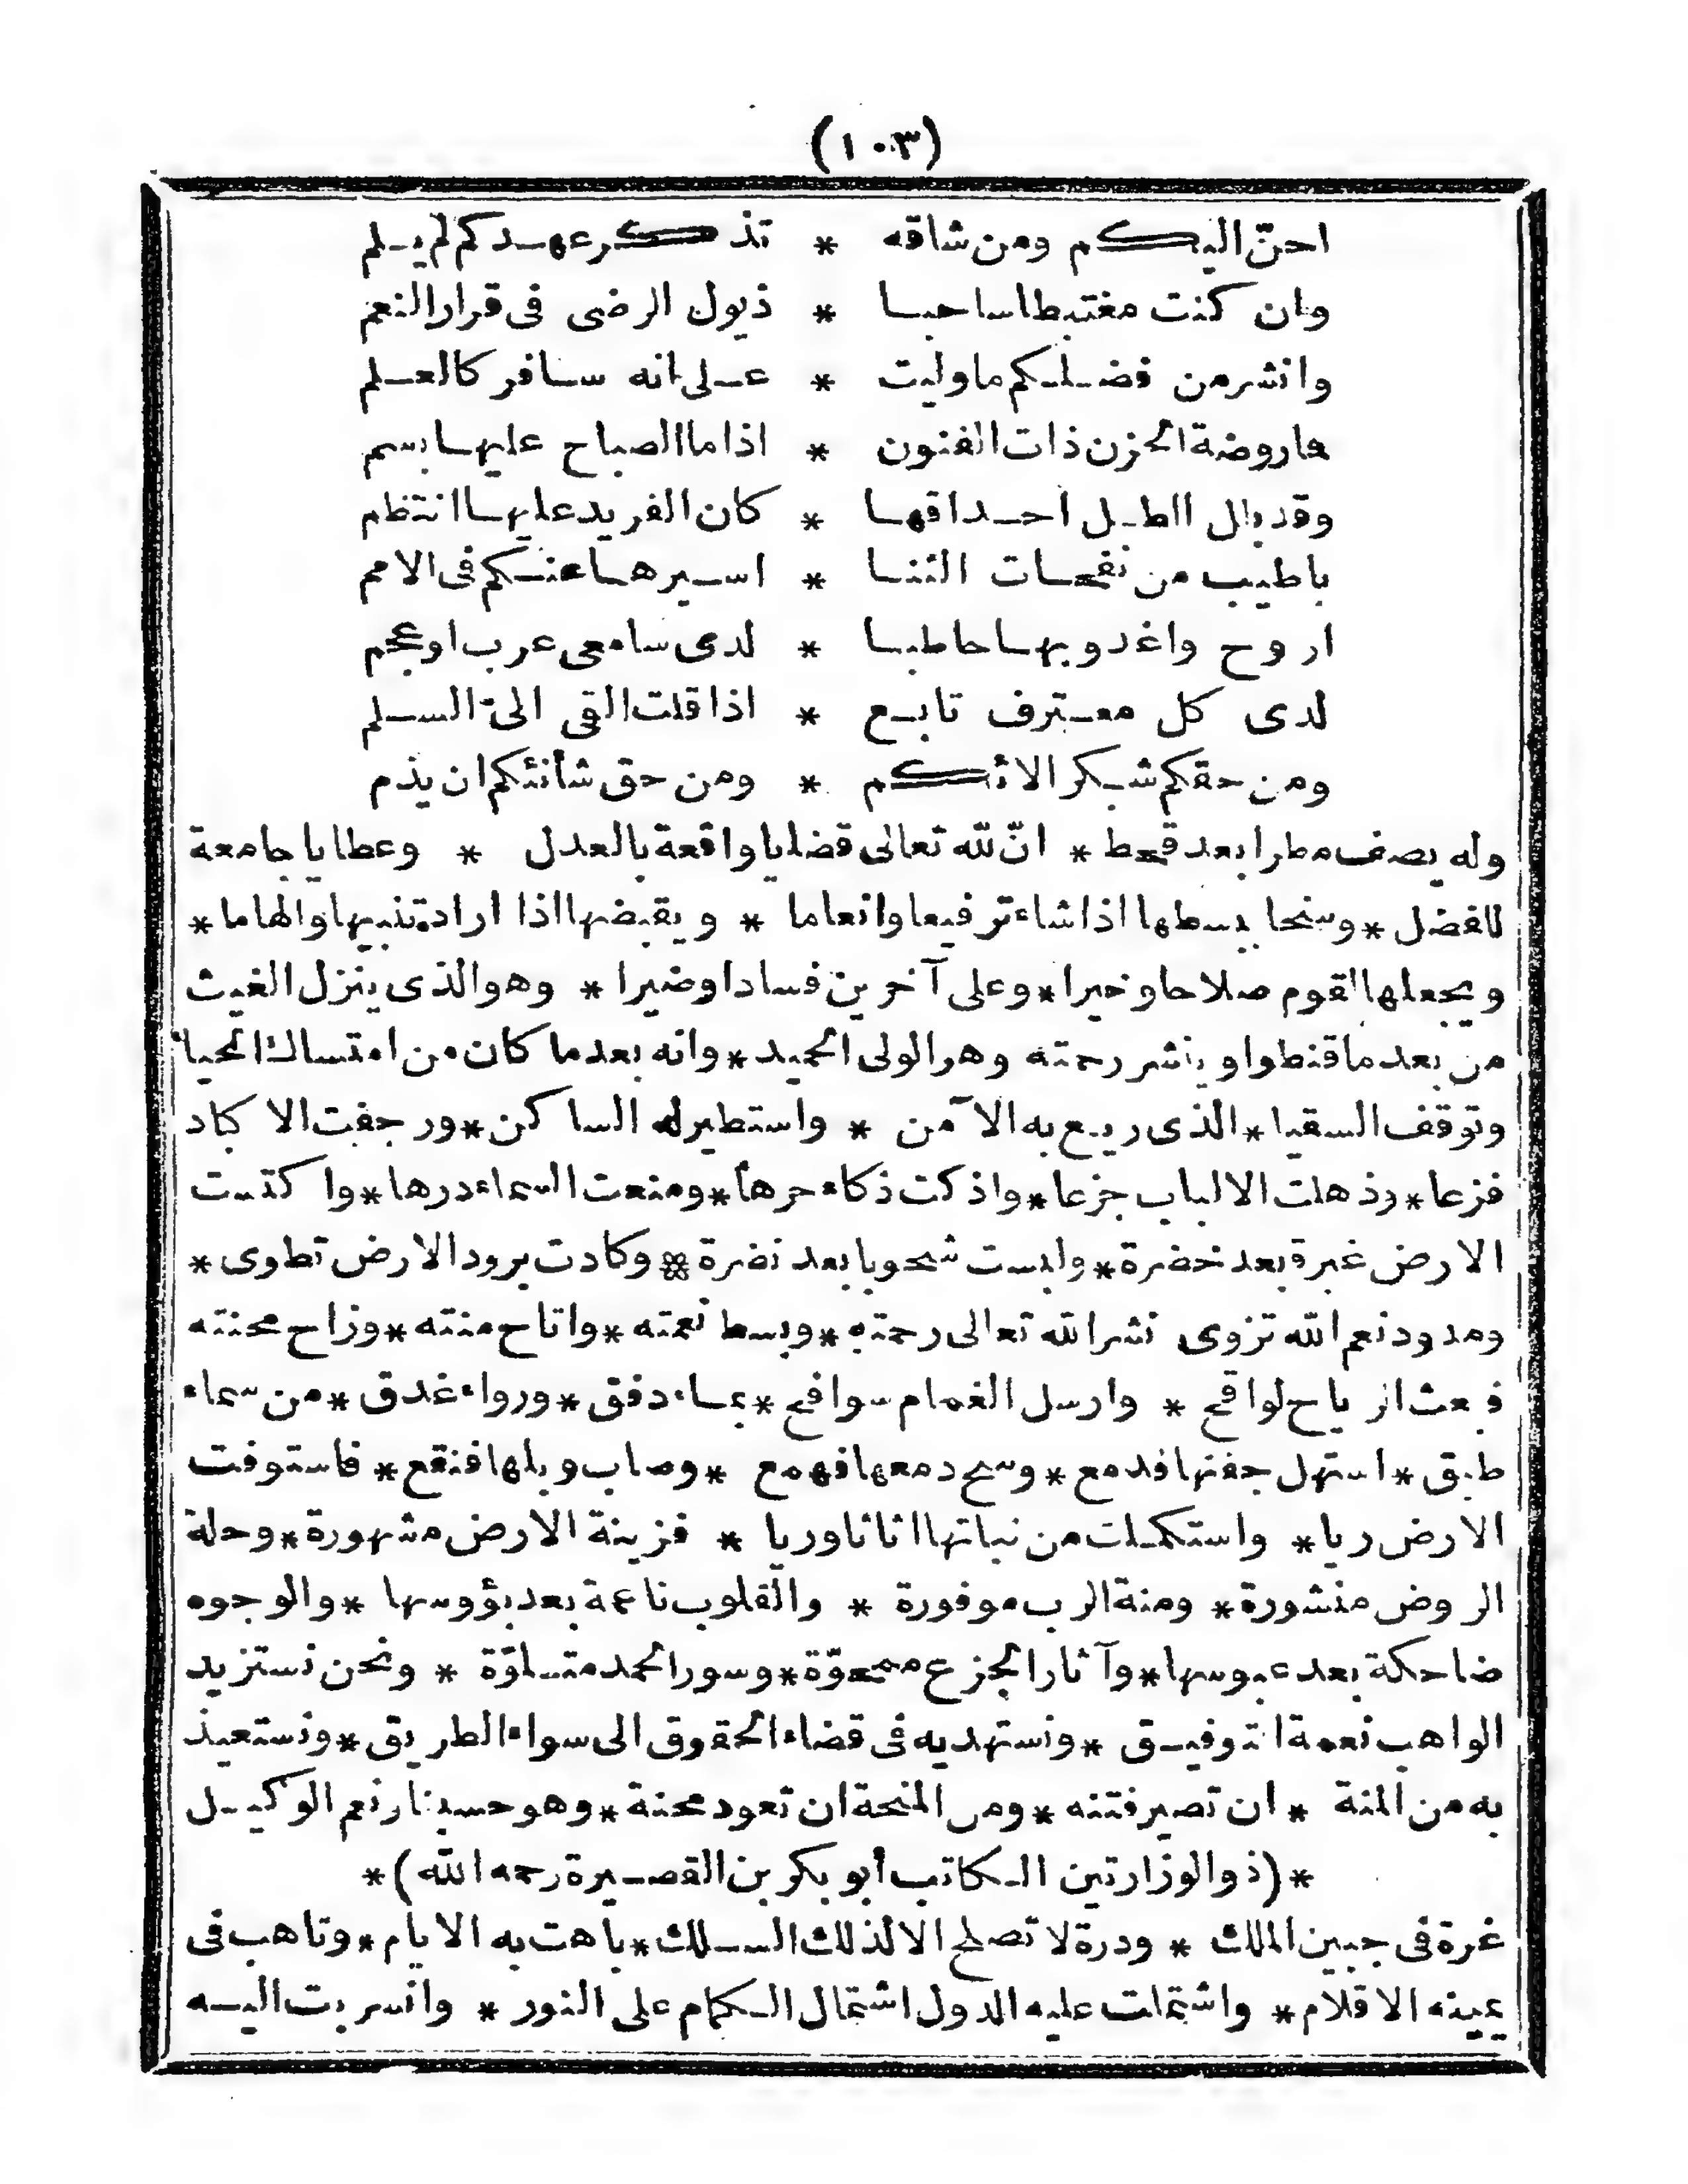 (١٠٣)
احنّ اليكم ومن شاقه * تذكر عهدكم لم يلم
وان كنت مغتبطا ساحبا * ذيول الرضى فى قرار النعم
وانشر من فضلكم ماوليت * على انه سافر كالعلم
فاروضة الحزن ذات الفنون * اذا ماالصباح عليها بسم
وقد بال الطل احداقها * كان الفريد عليها انتظم
باطيب من نفحات الثنا * اسيرها عنكم فى الامم
اروح واغدو بها حاطبا * لدى سامعى عرب او عجم
لدى كل معترف تابع * اذا قلت القى الىّ السلم
ومن حقكم شكر الائكم * ومن حق شأنئكم ان يذم
وله يصف مطرا بعد قحط * انّ لله تعالى قضايا واقعة بالعدل * وعطايا جامعة
للفضل * وسنحا يبسطها اذا شاء ترفيعا وانعاما * ويقبضها اذا اراد تنبيها والهاما *
ويجعلها لقوم صلاحا وخيرا * وعلى آخرين فسادا وضيرا * وهو الذى ينزل الغيث
من بعد ماقنطوا وينشر رحمته وهو الولى الحميد * وانه بعد ما كان من امتساك الحيا
وتوقف السقيا * الذى ريع به الآمن * واستطير له الساكن * ورجفت الاكباد
فزعا * وذهلت الالباب جزعا * واذكت ذكاء حرها * ومنعت السماء درها * واكتست
الارض غبرة بعد خضرة * ولبست شحوبا بعد نضرة * وكادت برود الارض تطوى *
ومدود نعم الله تزوى نشر الله تعالى رحمته * وبسط نعمته * واتاح منته * وزاح محنته
فبعث الرياح لواقح * وارسل الغمام سوافح * بماء دفق * ورواء غدق * من سماء
طبق * استهل جفنها فدمع * وسح دمعها فهمع * وصاب وبلها فنقع * فاستوفت
الارض ريا * واستكملت من نباتها اثاثا وريا * فزينة الارض مشهورة * وحلة
الروض منشورة * ومنة الرب موفورة * والقلوب ناعمة بعد بؤوسها * والوجوه
ضاحكة بعد عبوسها * وآثار الجزع ممحوّة * وسور الحمد متلوّة * ونحن نستزيد
الواهب نعمة التوفيق * ونستهديه فى قضاء الحقوق الى سواء الطريق * ونستعيذ
به من المنة * ان تصير فتنه * ومن المنحة ان تعود محنة * وهو حسبنا ونعم الوكيل
* (ذو الوزارتين الكاتب أبو بكر بن القصيرة رحمه الله) *
غرة فى جبين الملك * ودرة لا تصلح الا لذلك السلك * باهت به الايام * وتاهب فى
يمينه الاقلام * واشتملت عليه الدول اشتمال الكمام على النور * وانسربت اليه